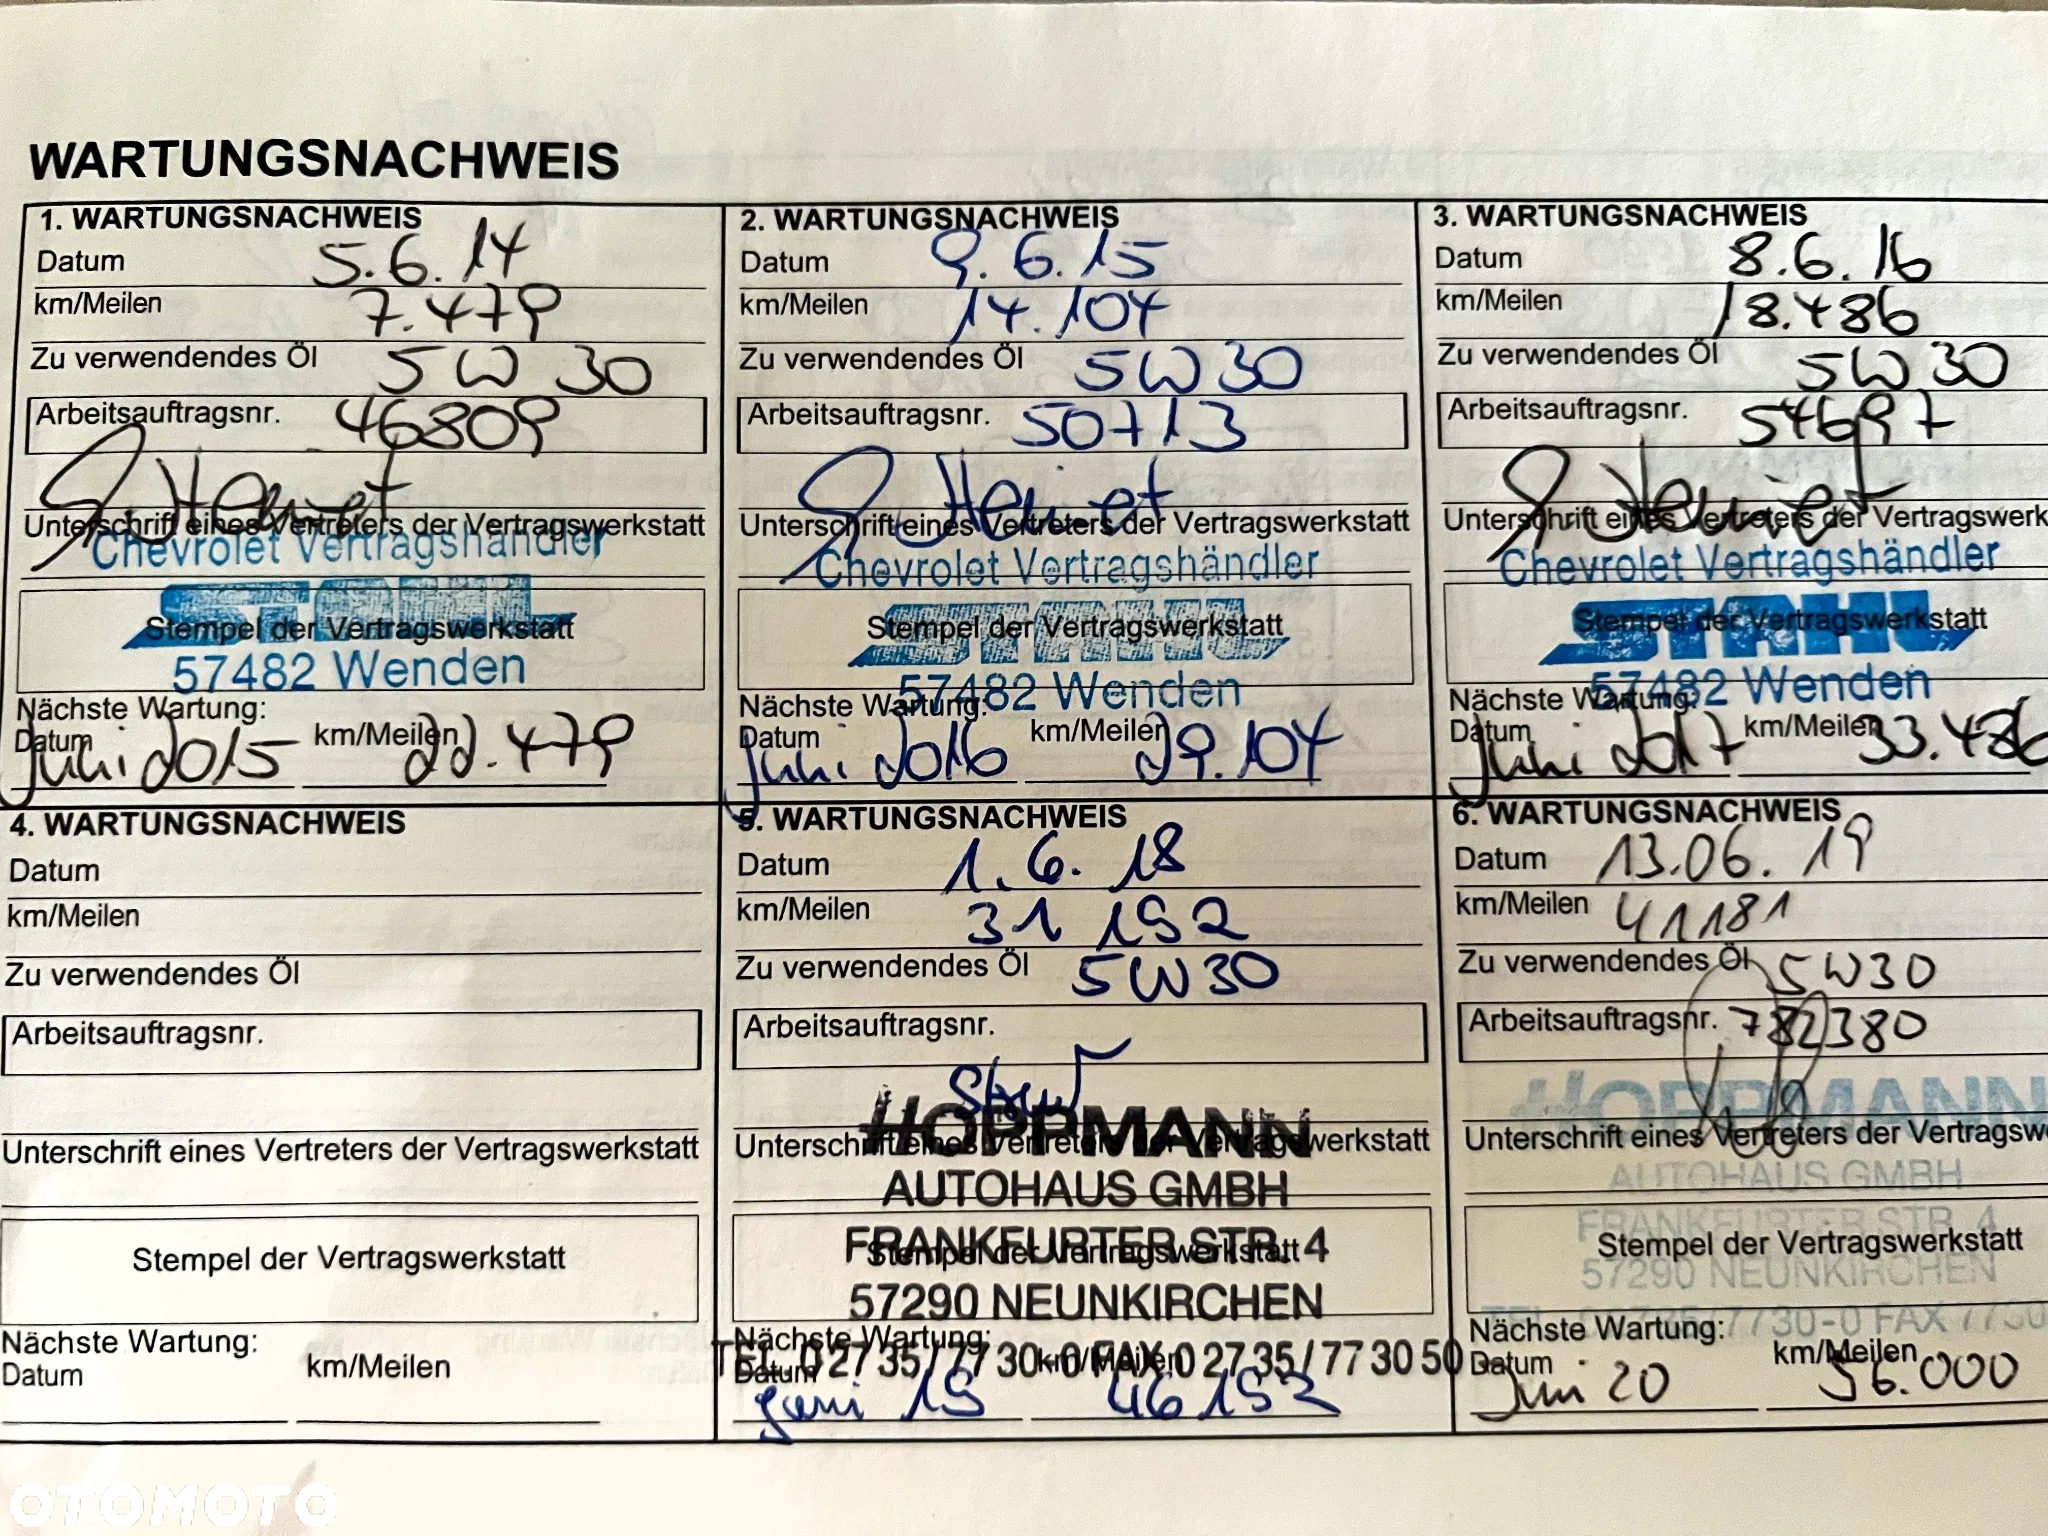 WARTUNGSNACHWEIS
1. WARTUNGSNACHWEIS
Datum 5.6.14
km/Meilen 7.479
Zu verwendendes Öl 5W30
Arbeitsauftragsnr. 46809
Unterschrift eines Vertreters der Vertragswerkstatt
Chevrolet Vertragshändler
STAHL
Stempel der Vertragswerkstatt
57482 Wenden
Nächste Wartung:
Datum Juni 2015 km/Meilen 22.479
2. WARTUNGSNACHWEIS
Datum 9.6.15
km/Meilen 14.104
Zu verwendendes Öl 5W30
Arbeitsauftragsnr. 50713
Unterschrift eines Vertreters der Vertragswerkstatt
Chevrolet Vertragshändler
STAHL
Stempel der Vertragswerkstatt
57482 Wenden
Nächste Wartung:
Datum Juni 2016 km/Meilen 29.104
3. WARTUNGSNACHWEIS
Datum 8.6.16
km/Meilen 18.486
Zu verwendendes Öl 5W30
Arbeitsauftragsnr. 54697
Unterschrift eines Vertreters der Vertragswerk
Chevrolet Vertragshändler
STAHL
Stempel der Vertragswerkstatt
57482 Wenden
Nächste Wartung:
Datum Juni 2017 km/Meilen 33.486
4. WARTUNGSNACHWEIS
Datum
km/Meilen
Zu verwendendes Öl
Arbeitsauftragsnr.
Unterschrift eines Vertreters der Vertragswerkstatt
Stempel der Vertragswerkstatt
Nächste Wartung:
Datum km/Meilen
5. WARTUNGSNACHWEIS
Datum 1.6.18
km/Meilen 31 192
Zu verwendendes Öl 5W30
Arbeitsauftragsnr.
HOPPMANN
Unterschrift eines Vertreters der Vertragswerkstatt
AUTOHAUS GMBH
FRANKFURTER STR. 4
Stempel der Vertragswerkstatt
57290 NEUNKIRCHEN
Nächste Wartung:
TEL. 0 27 35 / 77 30-0 FAX 0 27 35 / 77 30 50
Datum Juni 19 km/Meilen 46 192
6. WARTUNGSNACHWEIS
Datum 13.06.19
km/Meilen 41181
Zu verwendendes Öl 5W30
Arbeitsauftragsnr. 782380
HOPPMANN
Unterschrift eines Vertreters der Vertragsw
AUTOHAUS GMBH
FRANKFURTER STR. 4
Stempel der Vertragswerkstatt
57290 NEUNKIRCHEN
TEL. 0 27 35 / 77 30-0 FAX 77 30
Nächste Wartung:
Datum Juni 20 km/Meilen 56.000
OTOMOTO